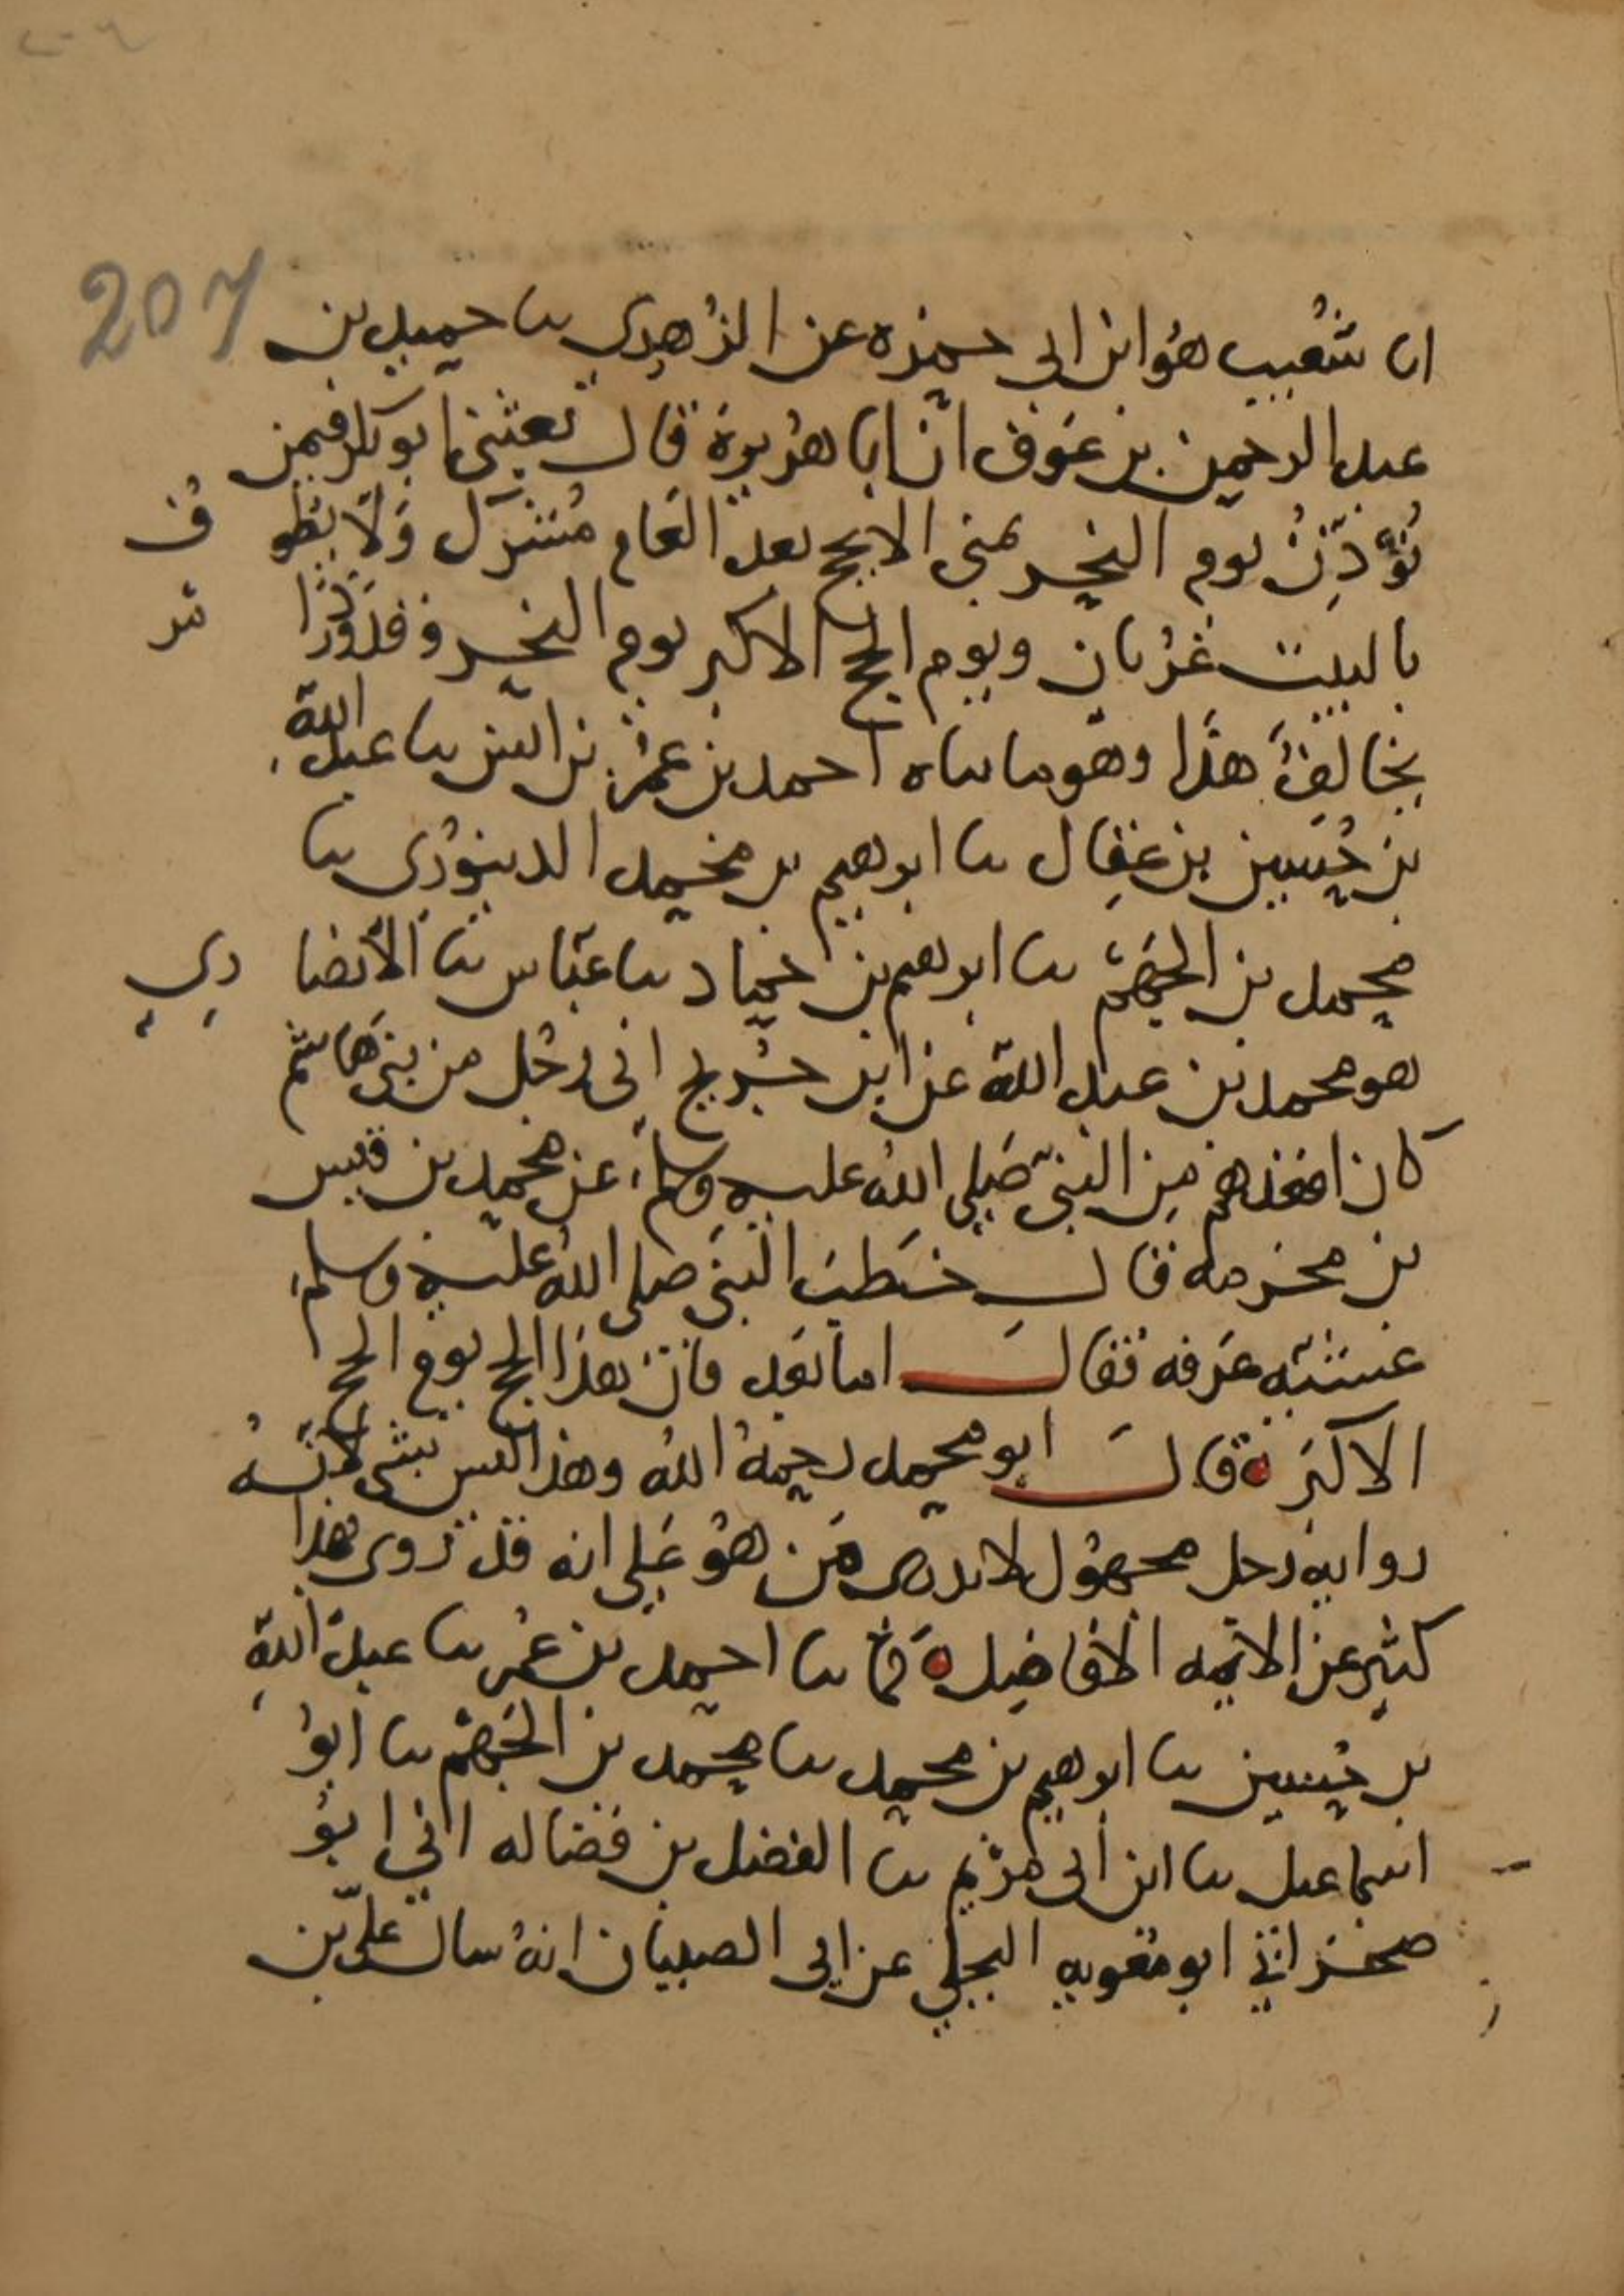 207
انا شعيب هو ابن ابي حمزه عن الزهري نا حميد بن
عبد الرحمن بن عوف ان ابا هريرة قال بعثني ابو بكر فيمن
يؤذن يوم النحر بمنى الا يحج بعد العام مشرك ولا يطوف
بالبيت عريان ويوم الحج الاكبر يوم النحر وقد ورد اثر
يخالف هذا وهو ما ناه احمد بن عمر بن انس نا عبد الله
بن حسين بن عقال نا ابرهيم بن محمد الدينوري نا
محمد بن الجهم نا ابرهيم بن حماد نا عباس نا الأنصاري
هو محمد بن عبد الله عن ابن جريج اني رجل من بني هاشم
كان اقعدهم من النبي صلى الله عليه وسلم عن محمد بن قيس
بن مخرمه قال خطب النبي صلى الله عليه وسلم
عشية عرفه فقال اما بعد فان هذا الحج يوم الحج
الاكبر قال ابو محمد رحمه الله وهذا ليس بشي لانه
روايه رجل مجهول لا ندري من هو على انه قد روى هذا
كثير عن الائمه الافاضل كما نا احمد بن عمر نا عبد الله
بن حسين نا ابرهيم بن محمد نا محمد بن الجهم نا ابو
اسماعيل نا ابن ابي مريم نا الفضل بن فضاله اني ابو
صخر اني ابو معويه البجلي عن ابي الصهبان انه سال علي بن